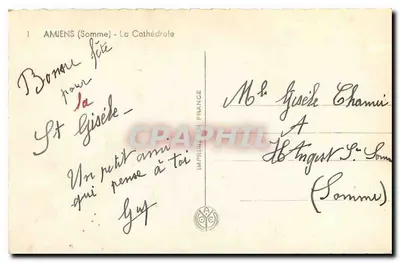 1 AMIENS (Somme) - La Cathédrale
Bonne fête
pour
la
St Gisèle -
Un petit ami
qui pense à toi
Guy
IMPRIMÉ EN FRANCE
CPARAMA
Mlle Gisèle
A
Hangest S/ Somme
(Somme)